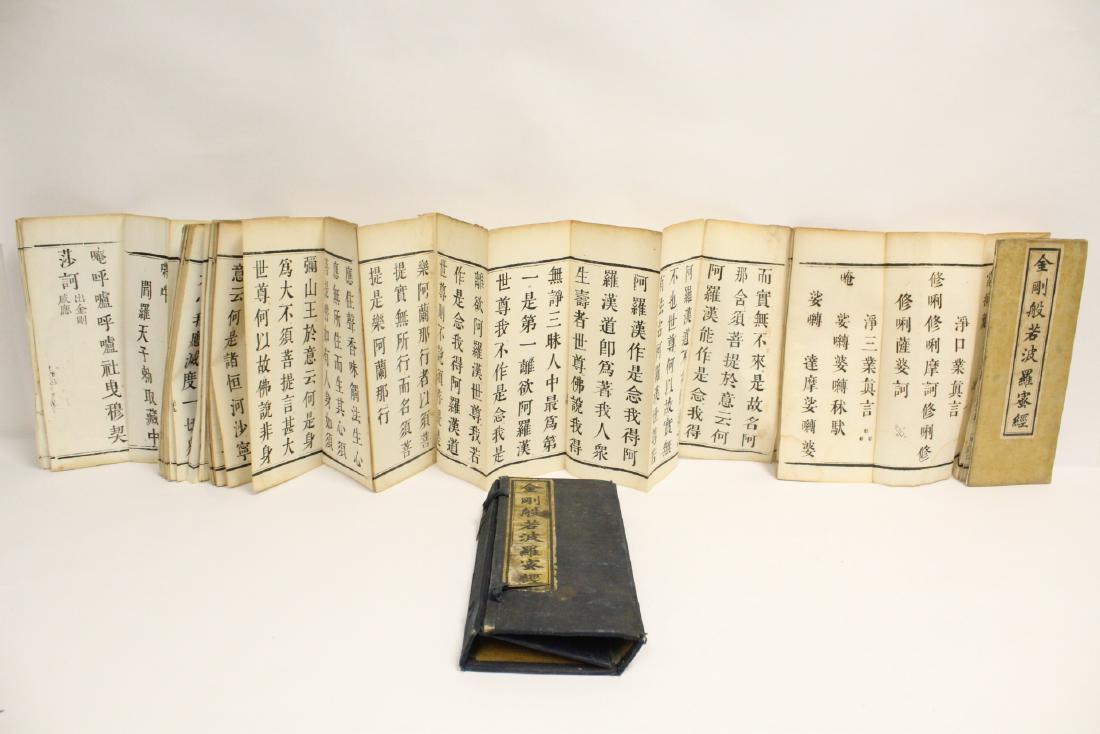 金剛般若波羅蜜經
淨口業真言
修唎修唎摩訶修唎修
修唎薩婆訶
淨三業真言
唵
娑嚩婆嚩秫馱
娑嚩 達摩娑嚩婆
而實無不來是故名阿
那含須菩提於意云何
阿羅漢能作是念我得
阿羅漢道不
不也世尊何以故實無
有法名阿羅漢世尊若
阿羅漢作是念我得阿
羅漢道卽爲著我人衆
生壽者世尊佛說我得
無諍三昧人中最爲第
一是第一離欲阿羅漢
世尊我不作是念我是
離欲阿羅漢世尊我若
作是念我得阿羅漢道
世尊則不說須菩提是
樂阿蘭那行者以須菩
提實無所行而名須菩
提是樂阿蘭那行
應住聲香味觸法生心
應無所住而生其心須
菩提譬如有人身如須
彌山王於意云何是身
爲大不須菩提言甚大
世尊何以故佛說非身
意云何是諸恒河沙寧
滅度一切
閻羅天子勅取藏中
唵呼嚧呼嚧社曳穆契
莎訶
出金剛
感應
金剛般若波羅蜜經